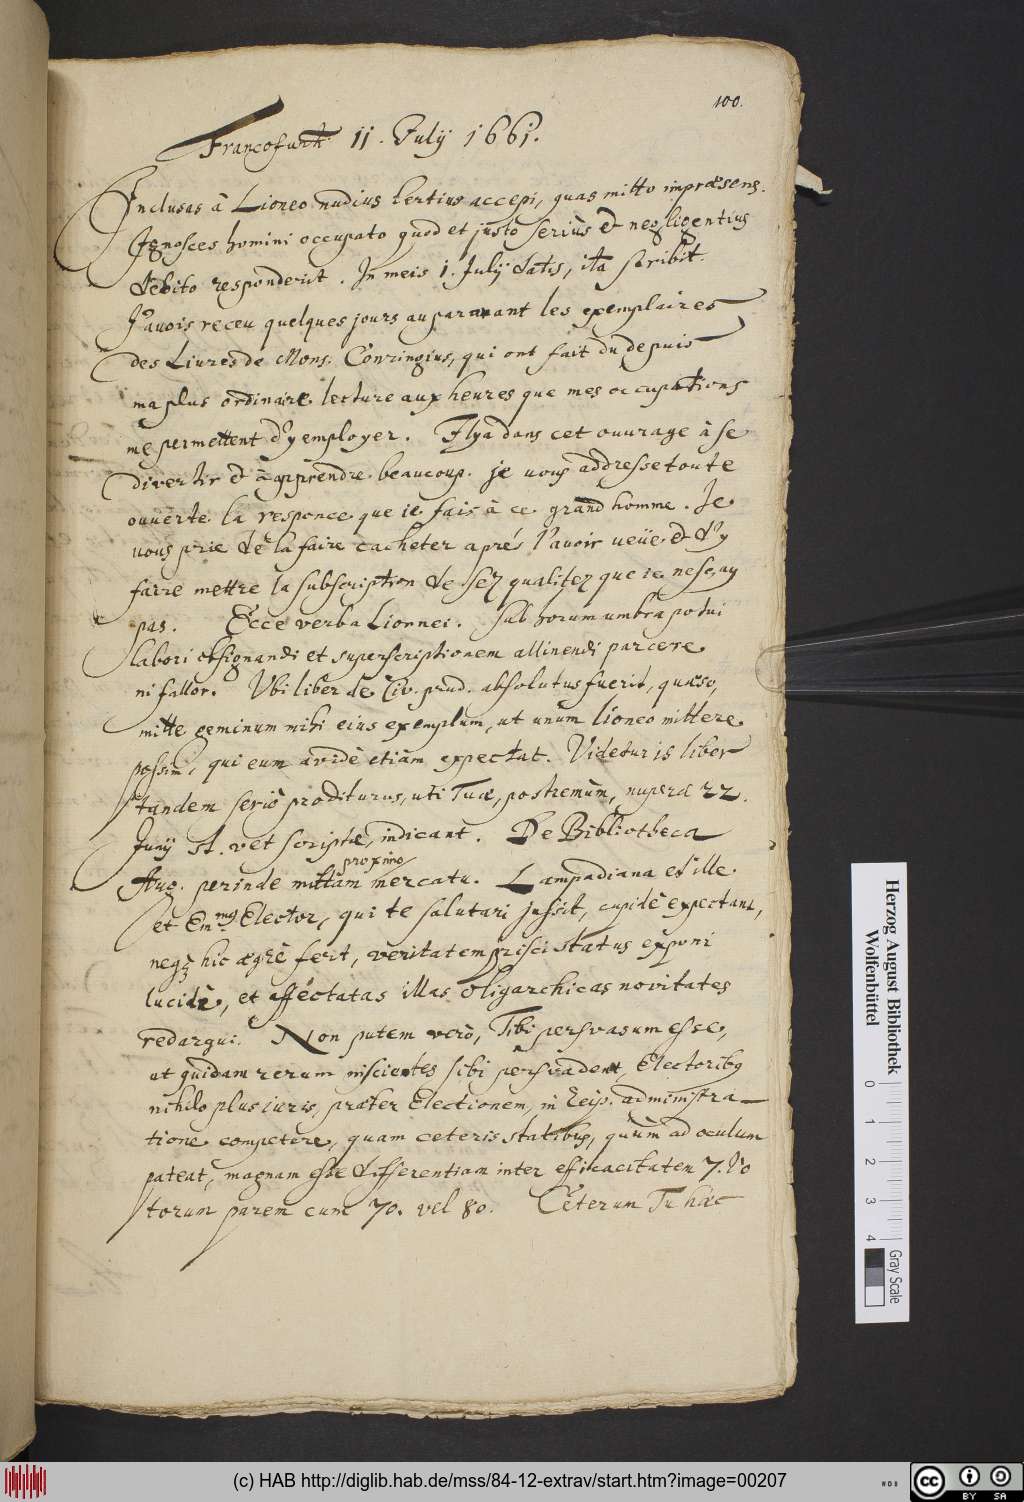 100.
Francofurti 11. Julij 1661.
Inclusas à Lioneo nudius tertius accepi, quas mitto impræsens.
Ignosces homini occupato quod et justò seriùs & negligentius
debito responderit. In meis 1. Julij datis, ita scribit.
J'avois receu quelques jours auparavant les exemplaires
des Livres de Mons. Conringius, qui ont fait du depuis
ma plus ordinaire lecture aux heures que mes occupations
me permettent d'y employer. Il ya dans cet ouvrage à se
divertir & à apprendre beaucoup. je vous addresse toute
ouverte la responce que ie fais à ce grand homme. Je
vous prie de la faire cacheter aprés l'avoir veüe & d'y
faire mettre la subscription de sez qualitez que ie ne sçay
pas. Ecce verba Lionnei. Sub horum umbra potui
labori obsignandi et superscriptionem allinendi parcere
ni fallor. Ubi liber de Civ. prud. absolutus fuerit, quæso,
mitte geminum mihi eius exemplum, ut unum Lioneo mittere
possim, qui eum avidè etiam expectat. Videtur is liber
tandem seriò proditurus, uti Tuæ, postremùm, nuperæ 22.
Junij st. vet scriptæ, indicant. De Bibliotheca
proximo
Aug. perinde mittam mercatu. Lampadiana et ille
et Em.mus Elector, qui te salutari jussit, cupidè expectant,
neq3 hic ægrè fert, veritatem prisci status exponi
lucidè, et affectatas illas Oligarchicas novitates
redargui. Non putem verò, Tibi persvasum esse,
ut quidam rerum nescientes sibi persvadent, Electoribus
nihilo plus iuris, præter Electionem, in Reip. administra-
tione competere, quam ceteris statibus, quùm ad oculum
pateat, magnam esse differentiam inter efficacitatem 7. Vo
torum parem cum 70. vel 80. Ceterum Tu hac
Herzog August Bibliothek
Wolfenbüttel
0 1 2 3 4
Gray Scale
(c) HAB http://diglib.hab.de/mss/84-12-extrav/start.htm?image=00207
cc BY SA